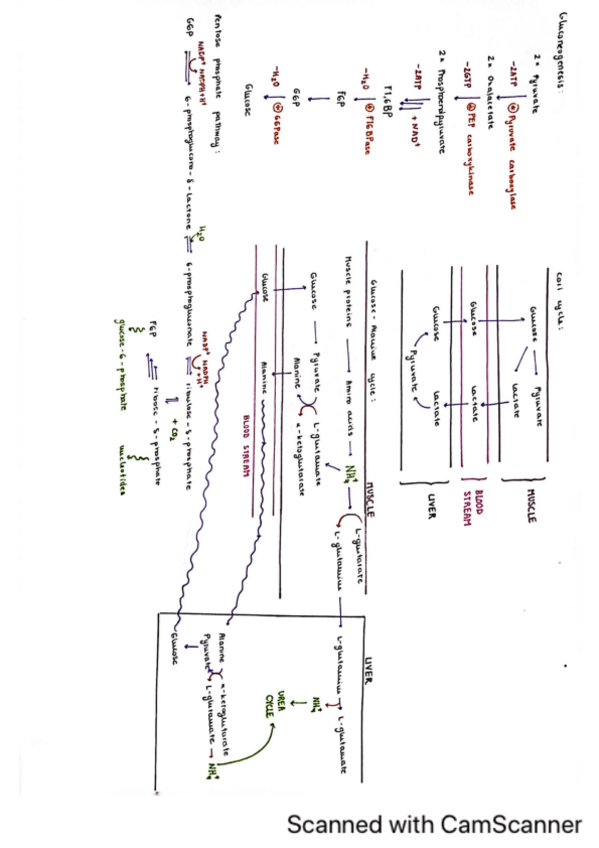 Gluconeogenesis:
2x Pyruvate
-2ATP ⊕ Pyruvate carboxylase
2x Oxaloacetate
-2GTP ⊕ PEP carboxykinase
2x Phosphoenolpyruvate
-2ATP + NAD⁺
F1,6BP
-H₂O ⊕ F16BPase
F6P
G6P
-H₂O ⊕ G6Pase
Glucose
Cori cycle:
Glucose → Pyruvate
Lactate
MUSCLE
Glucose Lactate
BLOOD STREAM
Glucose Lactate
Pyruvate
LIVER
Glucose-Alanine cycle:
MUSCLE
Muscle proteins → Amino acids → NH₄⁺
L-glutamine
L-glutamate
Glucose → Pyruvate
Alanine α-ketoglutarate
Glucose Alanine
BLOOD STREAM
LIVER
L-glutamine → L-glutamate
NH₄⁺
UREA CYCLE
Alanine α-ketoglutarate
Pyruvate L-glutamate → NH₄⁺
Glucose
Pentose phosphate pathway:
NADP⁺ NADPH+H⁺
G6P 6-phosphoglucono-δ-lactone
H₂O
6-phosphogluconate
NADP⁺ NADPH +H⁺
ribulose-5-phosphate
+ CO₂
F6P ribose-5-phosphate
glucose-6-phosphate nucleotides
Scanned with CamScanner